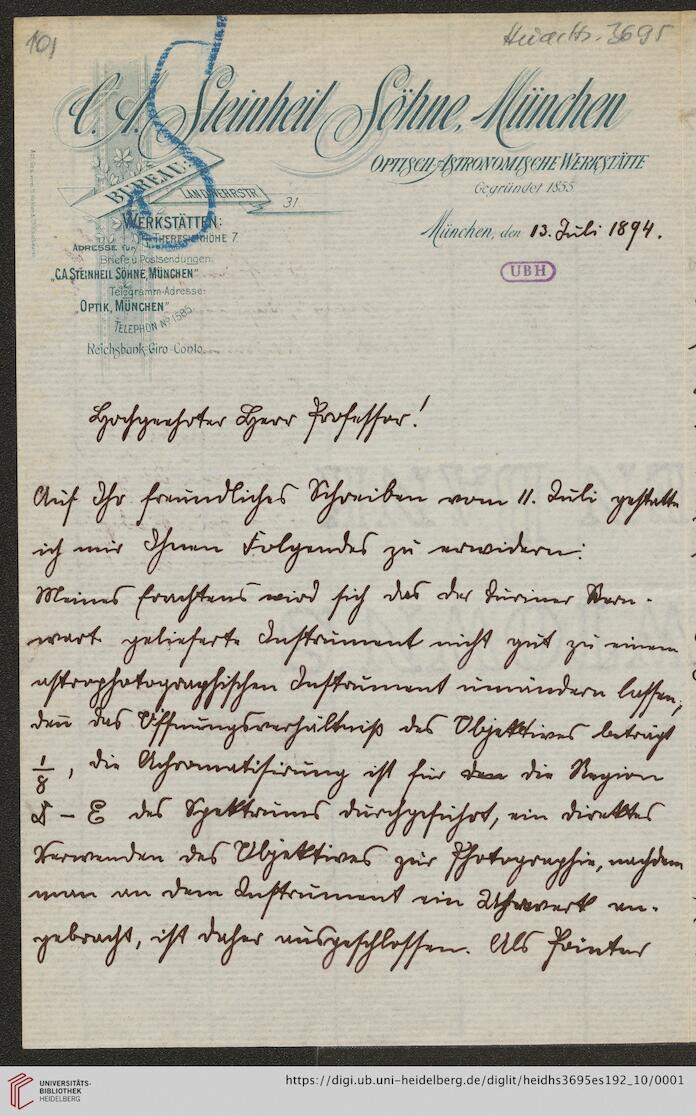 101
Heid. Hs. 3695
C. A. Steinheil Söhne, München
OPTISCH-ASTRONOMISCHE WERKSTÄTTE
Gegründet 1855
BUREAU:
LANDWEHRSTR. 31
WERKSTÄTTEN:
THERESIENHÖHE 7
München, den 13. Juli 1894.
ADRESSE FÜR
Briefe u. Postsendungen:
„C.A. STEINHEIL SÖHNE, MÜNCHEN"
UBH
Telegramm-Adresse:
OPTIK, MÜNCHEN"
TELEPHON No 1585
Reichsbank-Giro-Conto
Hochgeehrter Herr Professor!
Auf Ihr freundliches Schreiben vom 11. Juli gestatte
ich mir Ihnen Folgendes zu erwidern:
Meines Erachtens wird sich das der Turiner Stern-
warte gelieferte Instrument nicht gut zu einem
astrophotographischen Instrument umändern lassen,
den̅ das Öffnungsverhältniß des Objektives beträgt
1/8, die Achromatisirung ist für den die Region
– E des Spektrums durchgeführt, ein direktes
Verwenden des Objektives zur Photographie, nachdem
man an dem Instrument ein Uhrwerk an-
gebracht, ist daher ausgeschlossen. Als Pointer
UNIVERSITÄTS-
BIBLIOTHEK
HEIDELBERG
https://digi.ub.uni-heidelberg.de/diglit/heidhs3695es192_10/0001